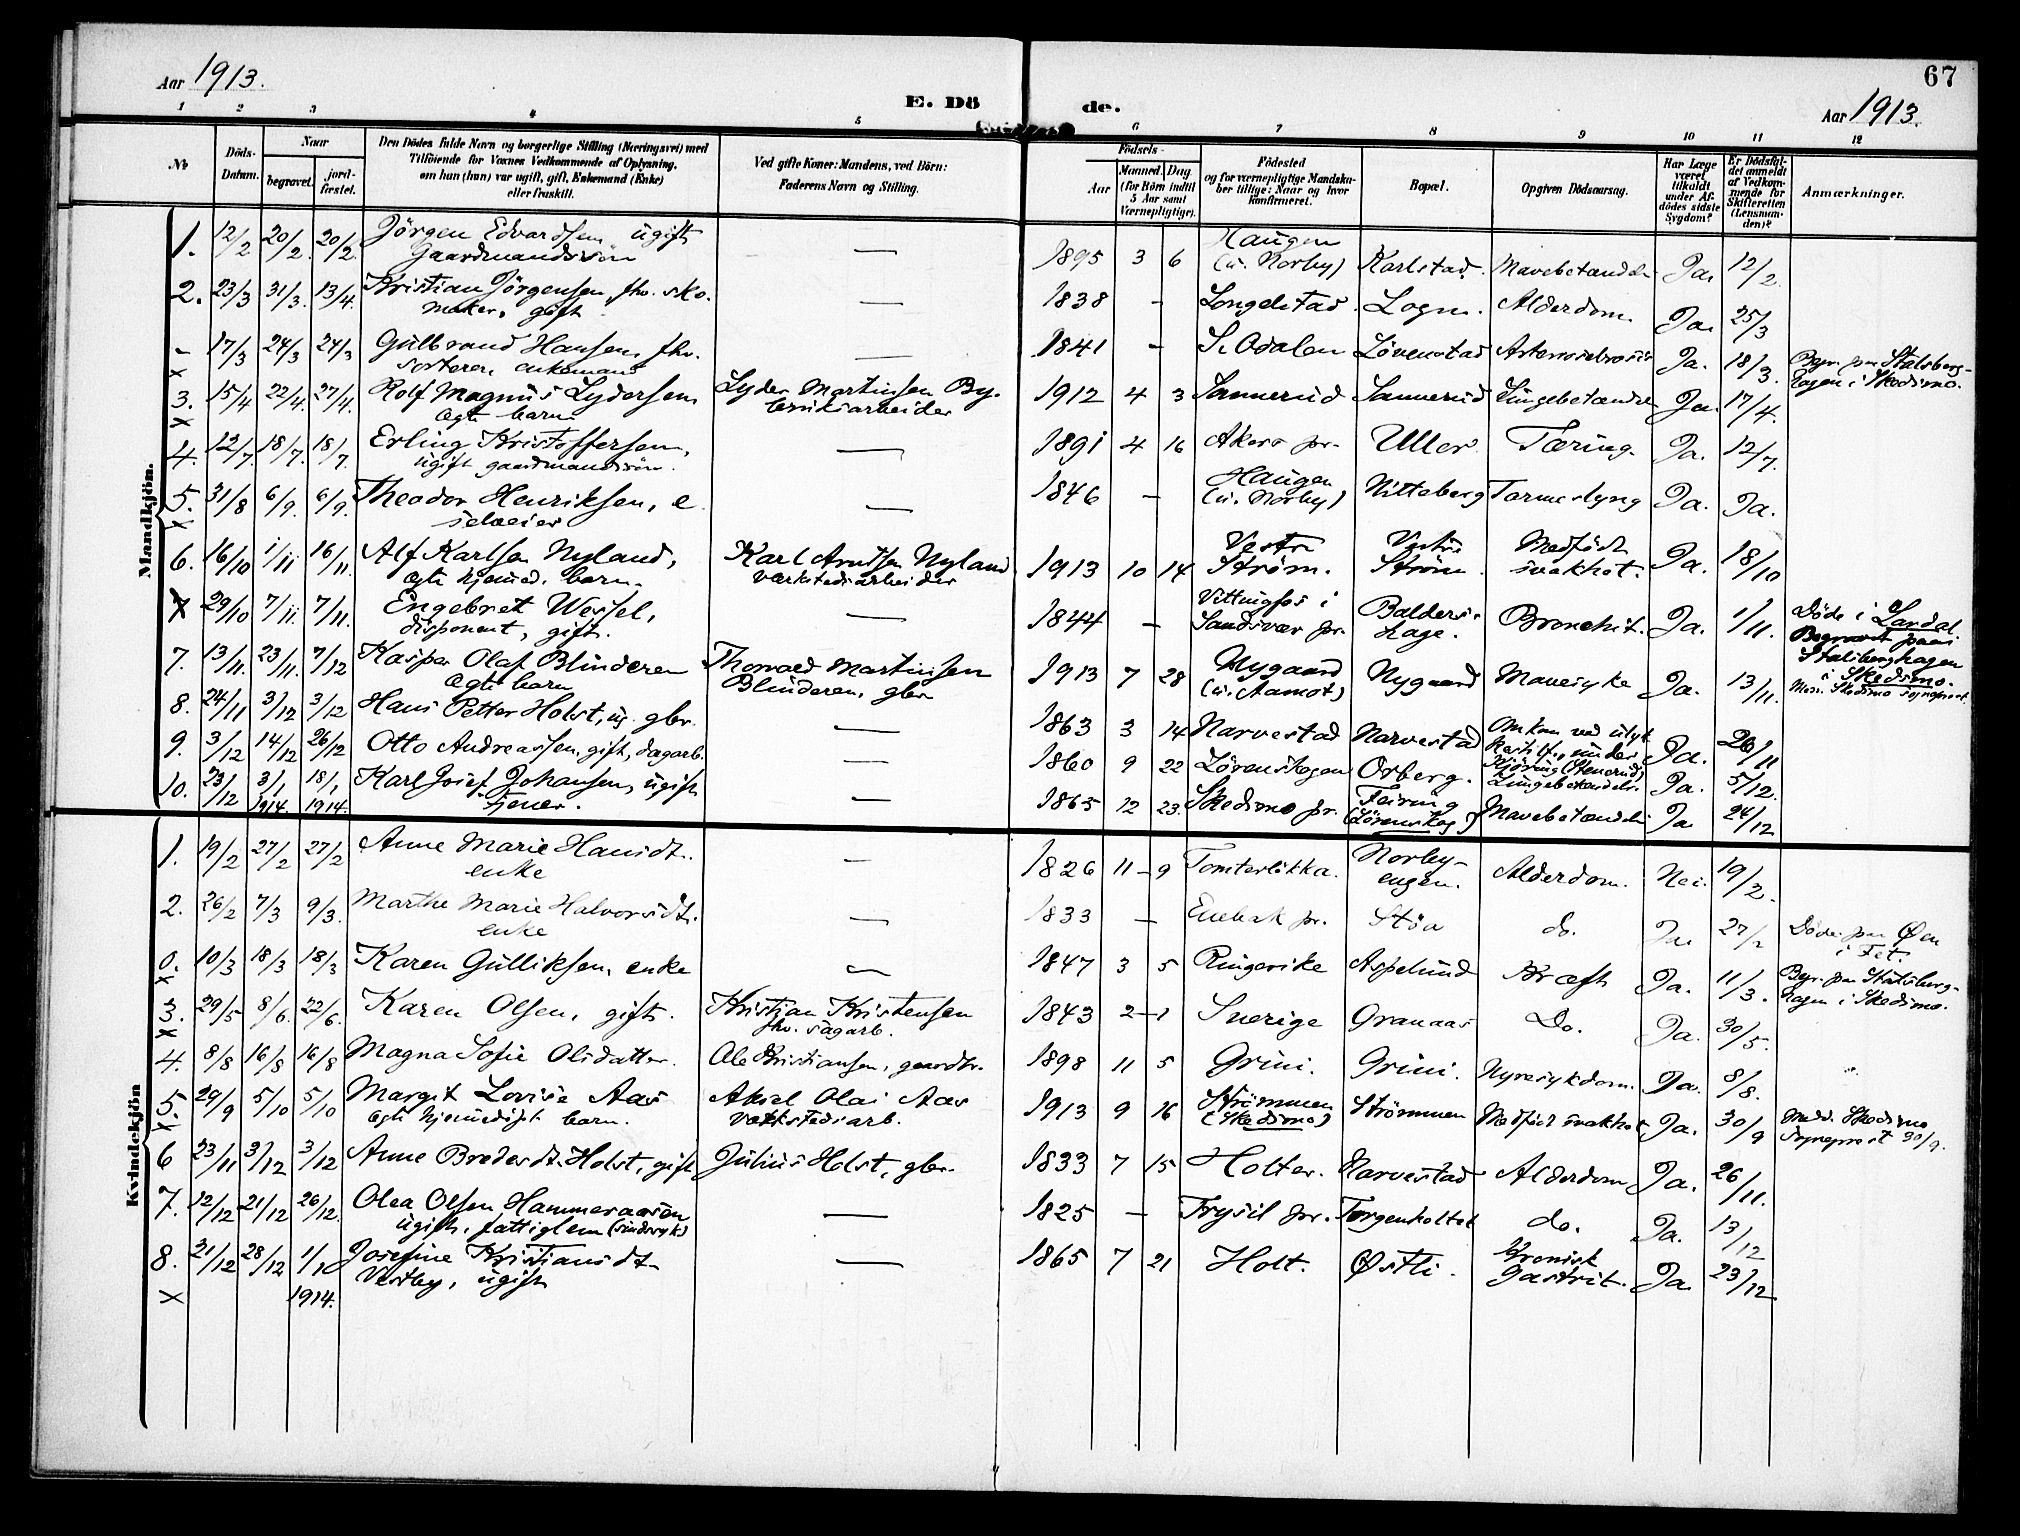 Aar 1913.
E. Dö de.
67
Aar 1913.
1 2 3 4 5 6 7 8 9 10 11 12
No
Döds-Datum.
Naar
begravet.
jord-fæstet.
Den Dödes fulde Navn og borgerlige Stilling (Næringsvei) med
Tilföiende for Voxnes Vedkommende af Oplysning,
om han (hun) var ugift, gift, Enkemand (Enke)
eller fraskilt.
Ved gifte Koner: Mandens, ved Börn:
Faderens Navn og Stilling.
Födsels-
Aar
Maaned. Dag
(for Börn indtil
5 Aar samt
Værnepligtige).
Födested
og for værnepligtige Mandska-
ber tillige: Naar og hvor
konfirmeret.
Bopæl.
Opgiven Dödsaarsag.
Har Læge
været
tilkaldt
under Af-
dödes sidste
Sygdom?
Er Dödsfal-
det anmeldt
af Vedkom-
mende for
Skifteretten
(Lensman-
den)?
Anmærkninger.
Mandkjön.
1. 12/2 20/2. 20/2. Jörgen Edvardsen ugift — 1895 3 6 Haugen (u. Norby) Karlstad. Mavebetændelse Ja. 12/2.
Gaardmandssön
2. 23/3 31/3. 13/4. Kristian Jörgensen, fhv. sko- — 1838 — Longelstad Logn. Alderdom. Ja. 25/3
maker, gift
– x 17/3 24/3 24/3 Gulbrand Hansen, fhv. — 1841 — S. Odalen Lövenstad Ja. 18/3. Begr. paa Stalsberg-
sorterer, enkemand hagen i Skedsmo.
3. x 15/4 22/4. 27/4. Rolf Magnus Lydersen Lyder Martinsen By. 1912 4 3 Sannerud Sannerud Lungebetændelse Ja. 17/4.
ægte barn bruksarbeider
4. 12/7. 18/7. 18/7. Erling Kristoffersen, — 1891 4 16 Akers pr. Uller Tæring. Ja. 12/7.
ugift gaardmandssön.
5. x 31/8 6/9. 6/9. Theodor Henriksen, e. — 1846 — Haugen (u. Norby) Nitteberg Tarmeslyng Ja. Ja.
selveier
6. 16/10 1/11 16/11. Alf Karlsen Nyland, Karl Arntsen Nyland 1913 10 14 Vestre Ström. Vestre Ström. Medfödt svakhet. Ja. 18/10
ægte hjemmed. barn. verkstedsarbeider
x 29/10 7/11. 7/11. Engebret Wessel, — 1844 — Vittingfos i Sandsvær pr. Baldershage. Bronchit. Ja. 1/11. Döde i Lardal.
disponent, gift. Begravet paa
Stalsberghagen
i Skedsmo.
7. 13/11. 23/11. 7/12 Kasper Olaf Blinderen Thorvald Martinsen 1913 7 28 Nygaard (u. Aamot) Nygaard Mavesyke Ja. 13/11.
Ægte barn Blinderen, gbr.
8. 24/11 3/12 3/12 Hans Petter Holst, ug. gbr. — 1863 3 14 Narvestad Narvestad Omkom ved ulykkestilf., under kjöring (Stenerud) Ja. 26/11
9. 3/12 14/12 26/12 Otto Andreassen, gift, dagarb. — 1860 9 22 Lörenskogen Orberg. Lungebetændelse. Ja. 5/12.
10. 23/12 3/1 1914. 18/1 1914. Karl Josef Johansen, ugift — 1865 12 23. Skedsmo pr. Feiring (Lörenskog) Mavebetændelse Ja 24/12
tjener.
Kvindekjön
1. 19/2 27/2 27/2 Anne Marie Hansdt. — 1826 11 – 9 Tomterlökka. Norby-engen. Alderdom. Nei. 19/2.
enke
2. 26/2 7/3 9/3. Marthe Marie Halvorsdt. — 1833 — Enebak pr. Stöa do. Ja. 27/2 Döde paa Øen
enke i Fet.
0. x 10/3 18/3 18/3 Karen Gulliksen, enke — 1847 3 5 Ringerike Aspelund Kræft Ja. 11/3. Begr. paa Stalsberg-
hagen i Skedsmo.
3. x 29/5 8/6. 22/6. Karen Olsen, gift. Kristian Kristensen 1843 2 – 1 Sverige Granaas Do. Ja. 30/5.
fhv. sagarb.
4. 8/8 16/8 16/8 Magna Sofie Olsdatter. Ole Kristiansen, gaardbr. 1898 11 5 Grini. Grini. Nyresykdom. Ja. 8/8.
5. x 29/9 5/10 5/10 Margit Lovise Aas Aksel Olai Aas 1913 9 16 Strömmen (Skedsmo) Strömmen Medfödt svakhet Ja. 30/9 Medd. Skedsmo
ægte hjemmedöpt barn. Verkstedsarb. Sogneprest 30/9.
6 23/11 3/12 3/12 Anne Bredesdt. Holst, gift Julius Holst, gbr. 1833 7 15 Holter. Narvestad Alderdom Ja. 26/11.
7. 12/12 21/12 26/12. Olea Olsen Hammeraasen — 1825 — Trysil pr. Torgenholtet do. Ja. 13/12
ugift, fattiglem (sindssyk)
8. x 21/12 28/12 1/1 1914. Josefine Kristiansdt. — 1865 7 21 Holt. Østli. Kronisk gastrit. Ja 23/12
Vestby, ugift